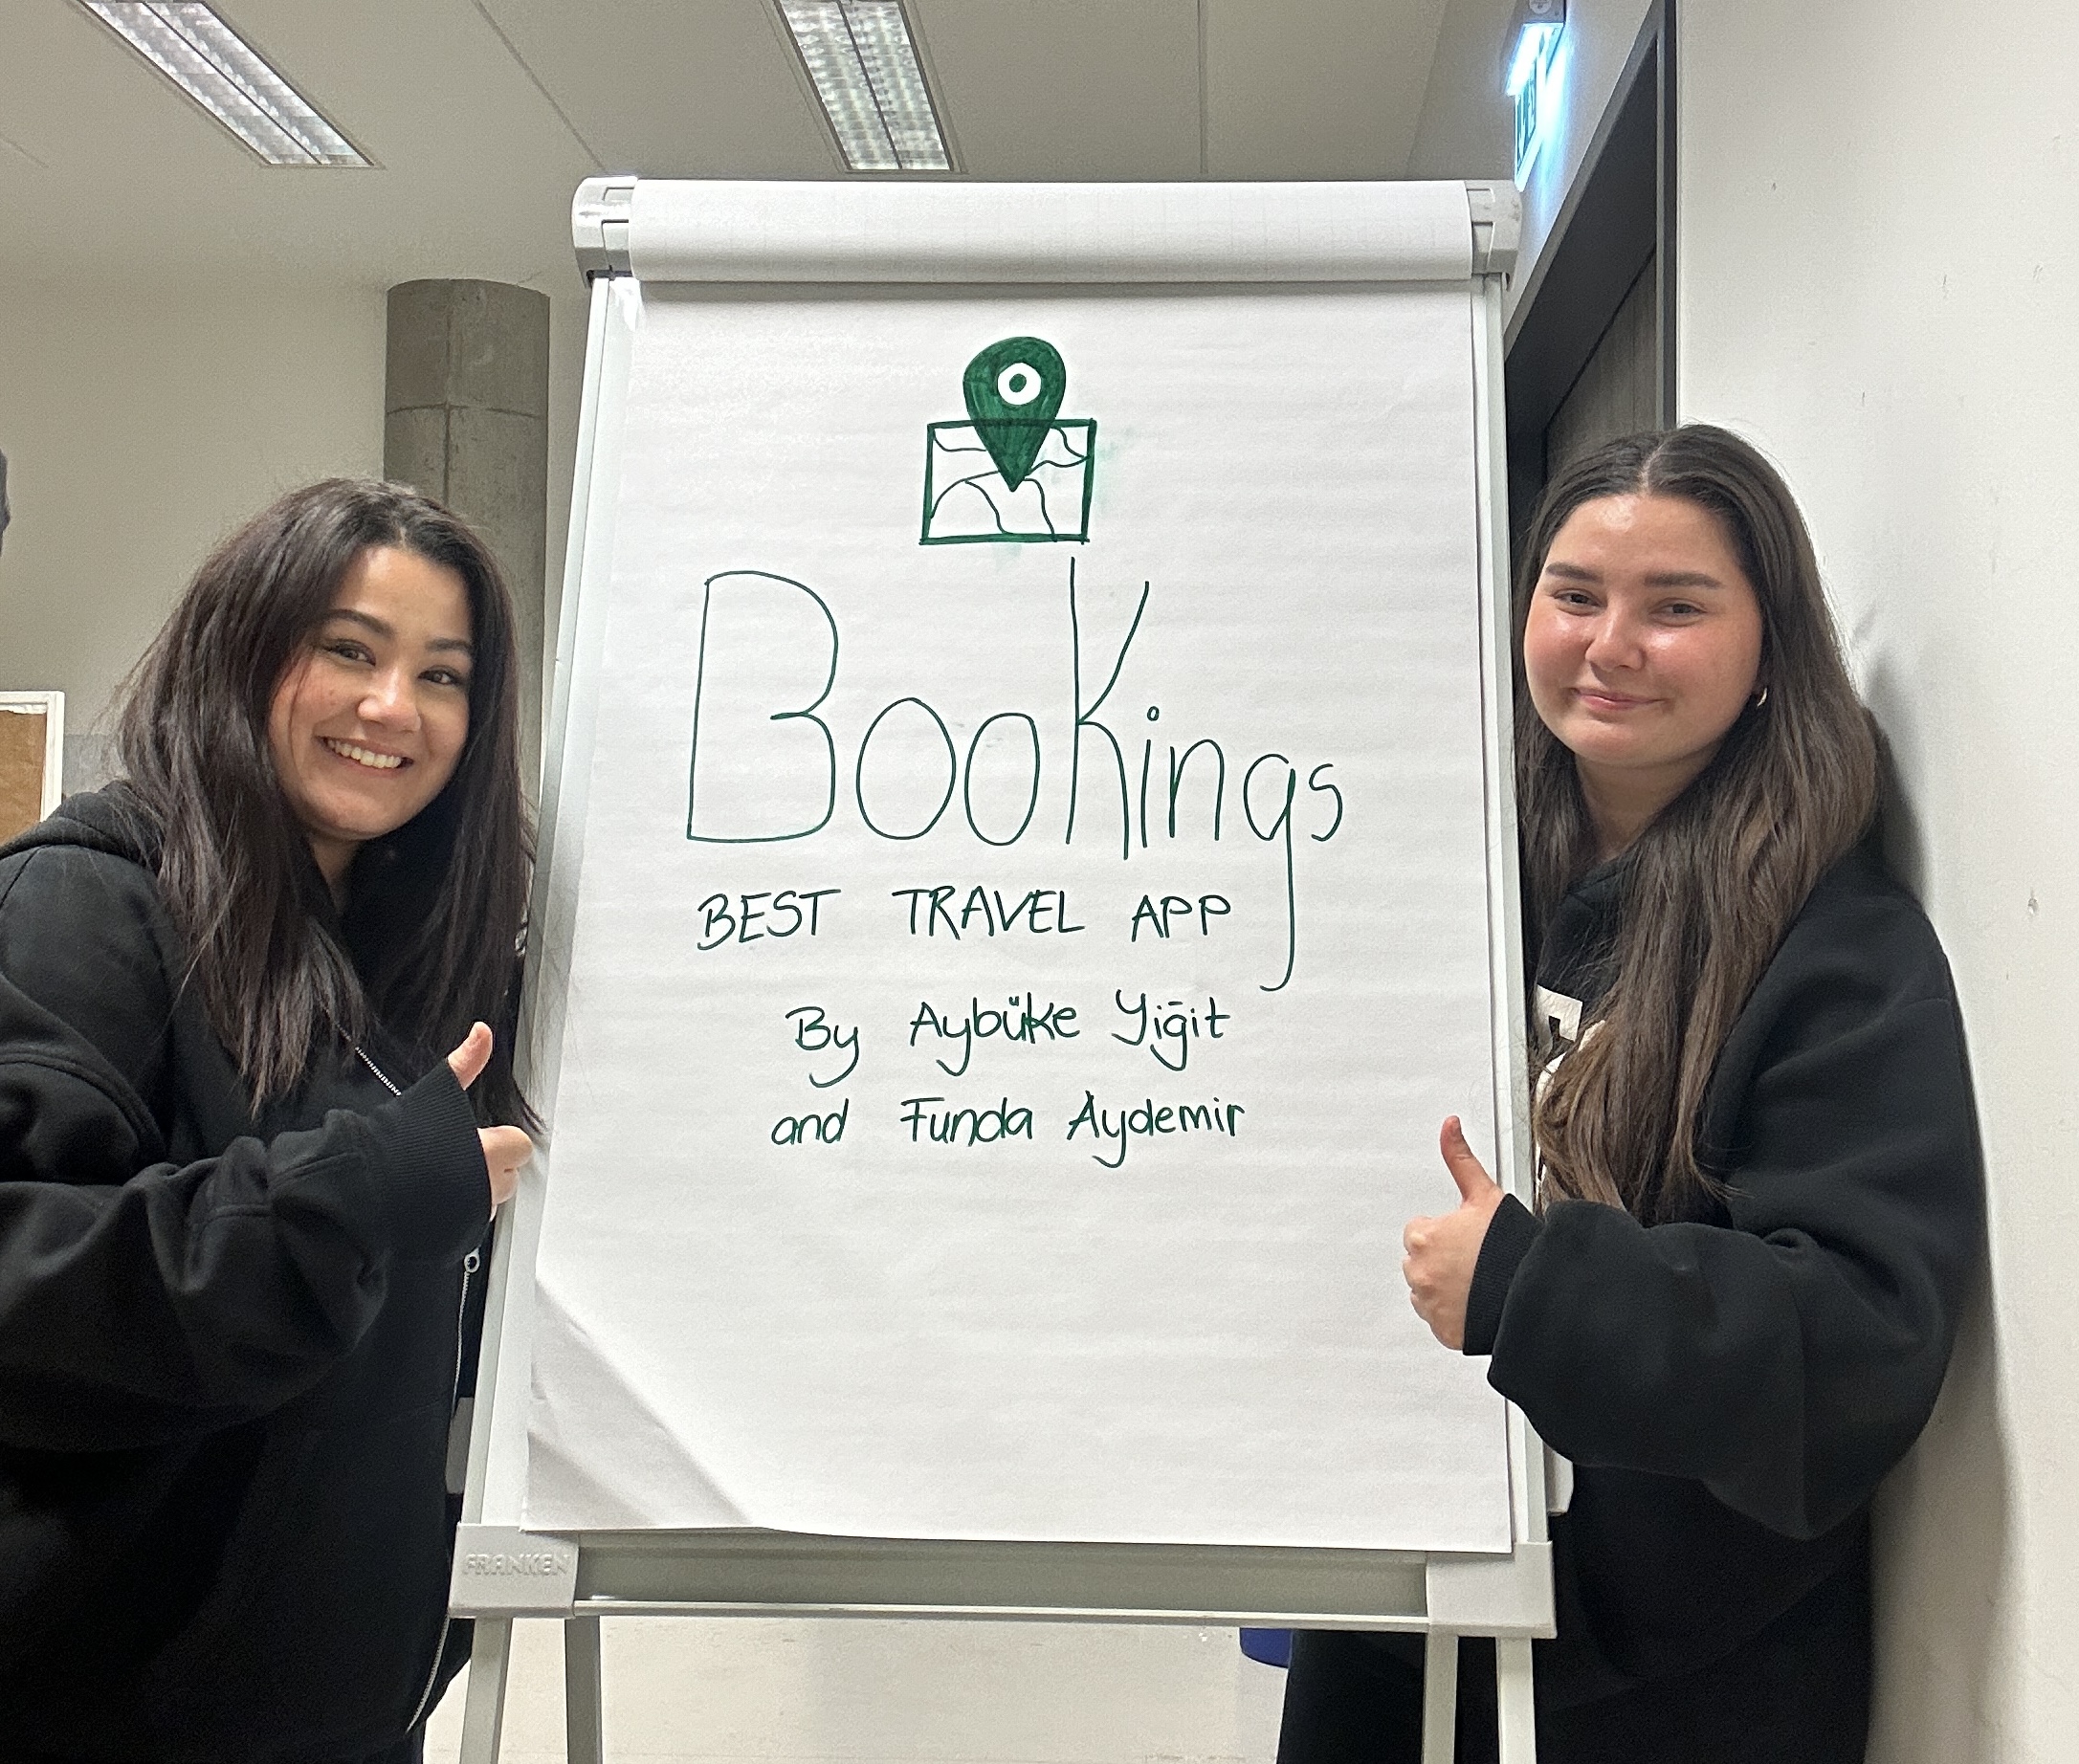 BooKings
BEST TRAVEL APP
By Aybüke Yiğit
and Funda Aydemir
FRANKEN